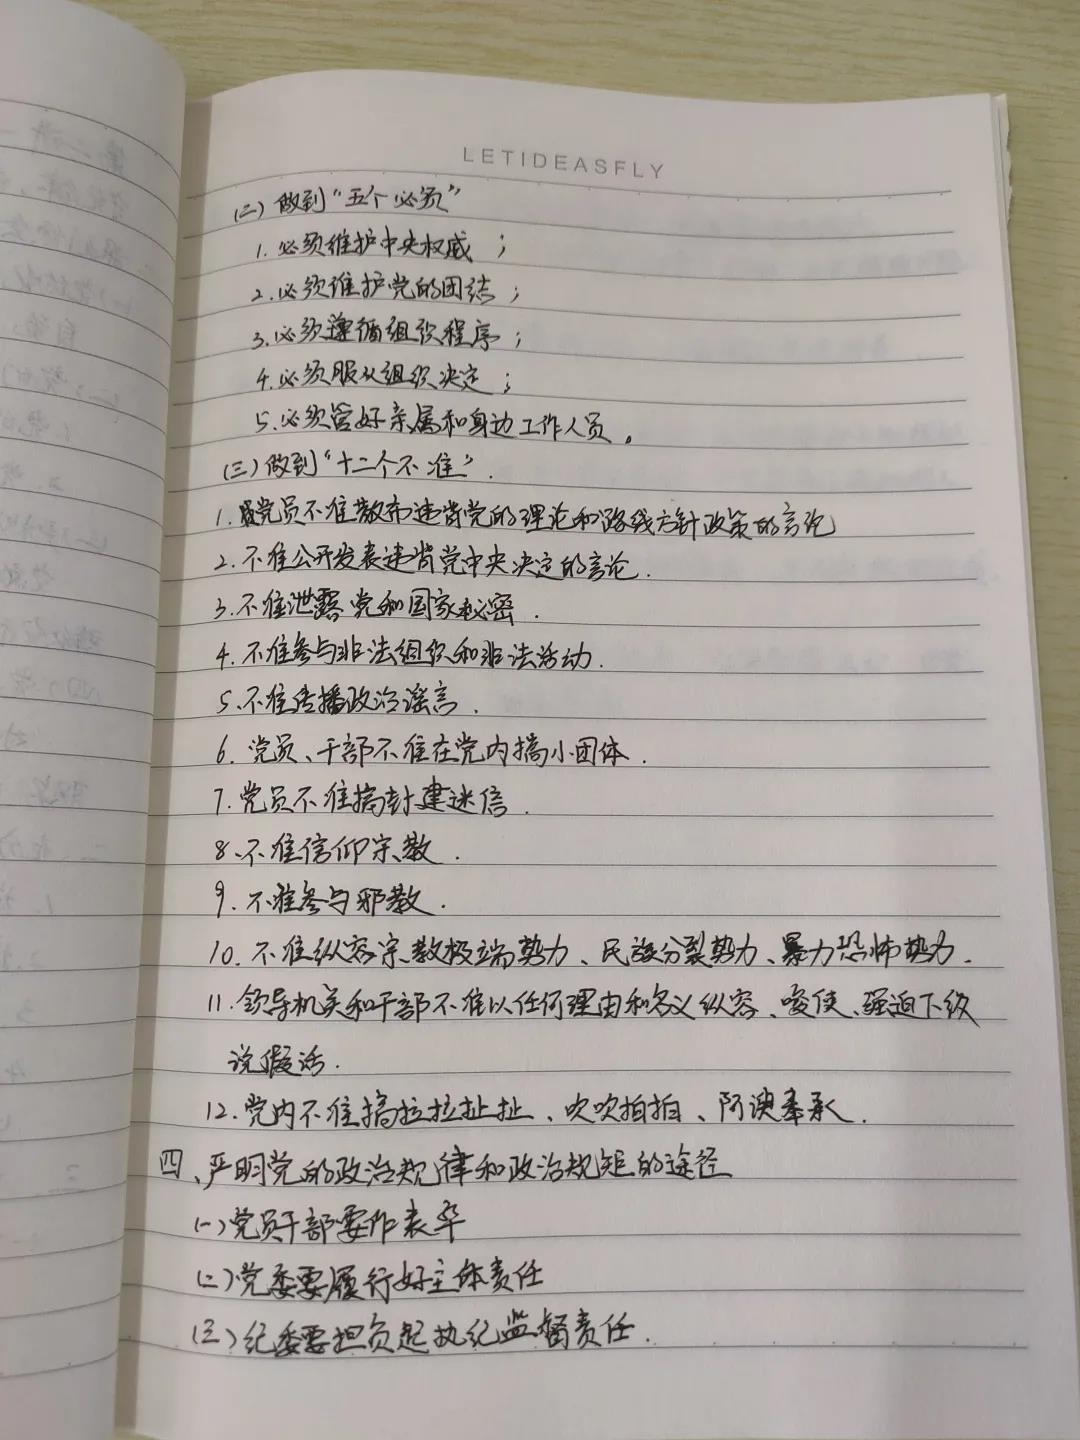 LETIDEASFLY
(二)做到“五个必须”
1.必须维护中央权威；
2.必须维护党的团结；
3.必须遵循组织程序；
4.必须服从组织决定；
5.必须管好亲属和身边工作人员。
(三)做到“十二个不准”.
1.党员不准散布违背党的理论和路线方针政策的言论
2.不准公开发表违背党中央决定的言论.
3.不准泄露党和国家秘密.
4.不准参与非法组织和非法活动.
5.不准传播政治谣言.
6.党员、干部不准在党内搞小团体.
7.党员不准搞封建迷信.
8.不准信仰宗教.
9.不准参与邪教.
10.不准纵容宗教极端势力、民族分裂势力、暴力恐怖势力.
11.领导机关和干部不准以任何理由和名义纵容、唆使、强迫下级
说假话.
12.党内不准搞拉拉扯扯、吹吹拍拍、阿谀奉承.
四、严明党的政治规律和政治规矩的途径
(一)党员干部要作表率
(二)党委要履行好主体责任
(三)纪委要担负起执纪监督责任.